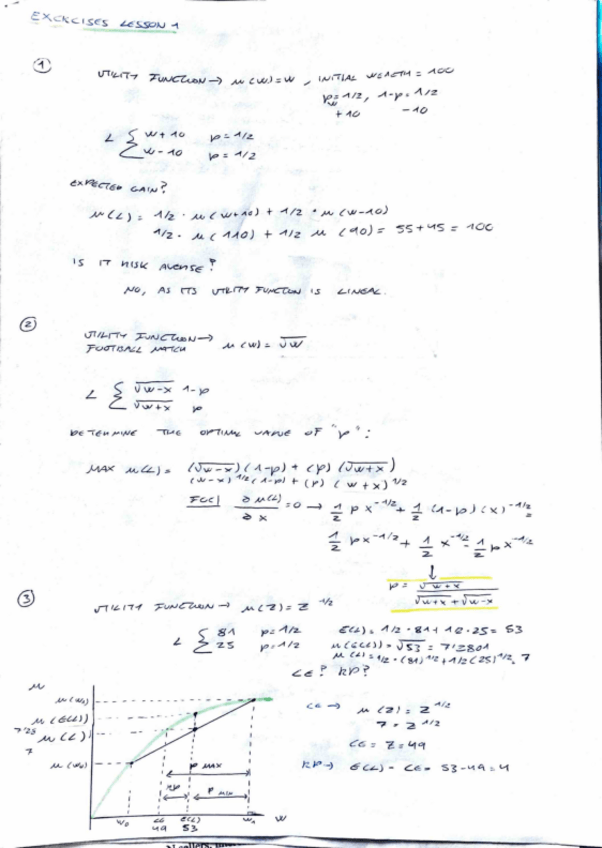 EXCKCISES LESSON 1
①
UTILITY FUNCTION → u(w) = w, INITIAL WEALTH = 100
p = 1/2, 1-p = 1/2
+10 -10
L { w + 10 p = 1/2
w - 10 p = 1/2
EXPECTED GAIN?
u(L) = 1/2 · u(w+10) + 1/2 · u(w-10)
1/2 · u(110) + 1/2 u(90) = 55 + 45 = 100
IS IT RISK AVERSE?
NO, AS ITS UTILITY FUNCTION IS LINEAL.
②
UTILITY FUNCTION →
FOOTBALL MATCH u(w) = √w
L { √w-x 1-p
√w+x p
DETERMINE THE OPTIMAL VALUE OF "p":
MAX u(L) = (√w-x)(1-p) + (p)(√w+x)
(w-x)^1/2 (1-p) + (p)(w+x)^1/2
FOC) ∂u(L)/∂x = 0 → 1/2 p x^-1/2 + 1/2 (1-p)(x)^-1/2 =
1/2 p x^-1/2 + 1/2 x^-1/2 - 1/2 p x^-1/2
↓
p = √w+x / √w+x + √w-x
③
UTILITY FUNCTION → u(z) = z^1/2
L { 81 p = 1/2 E(L) = 1/2 · 81 + 1/2 · 25 = 53
25 p = 1/2 u(E(L)) = √53 = 7'2801
u(L) = 1/2 · (81)^1/2 + 1/2 (25)^1/2 = 7
CE? RP?
CE → u(z) = z^1/2
7 = z^1/2
CE = z = 49
RP → E(L) - CE = 53 - 49 = 4
u
u(w₁)
u(E(L))
7'28
u(L)
7
u(w₀)
P MAX
RP
P MIN
w₀ CE E(L) w₁ w
49 53